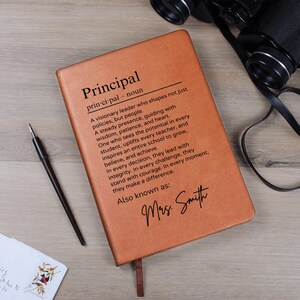 Principal
prin·ci·pal – noun
A visionary leader who shapes not just
policies, but people.
A steady presence, guiding with
wisdom, patience, and heart.
One who sees the potential in every
student, uplifts every teacher, and
inspires an entire school to grow,
believe, and achieve.
In every decision, they lead with
integrity. In every challenge, they
stand with courage. In every moment,
they make a difference.
Also known as:
Mrs. Smith